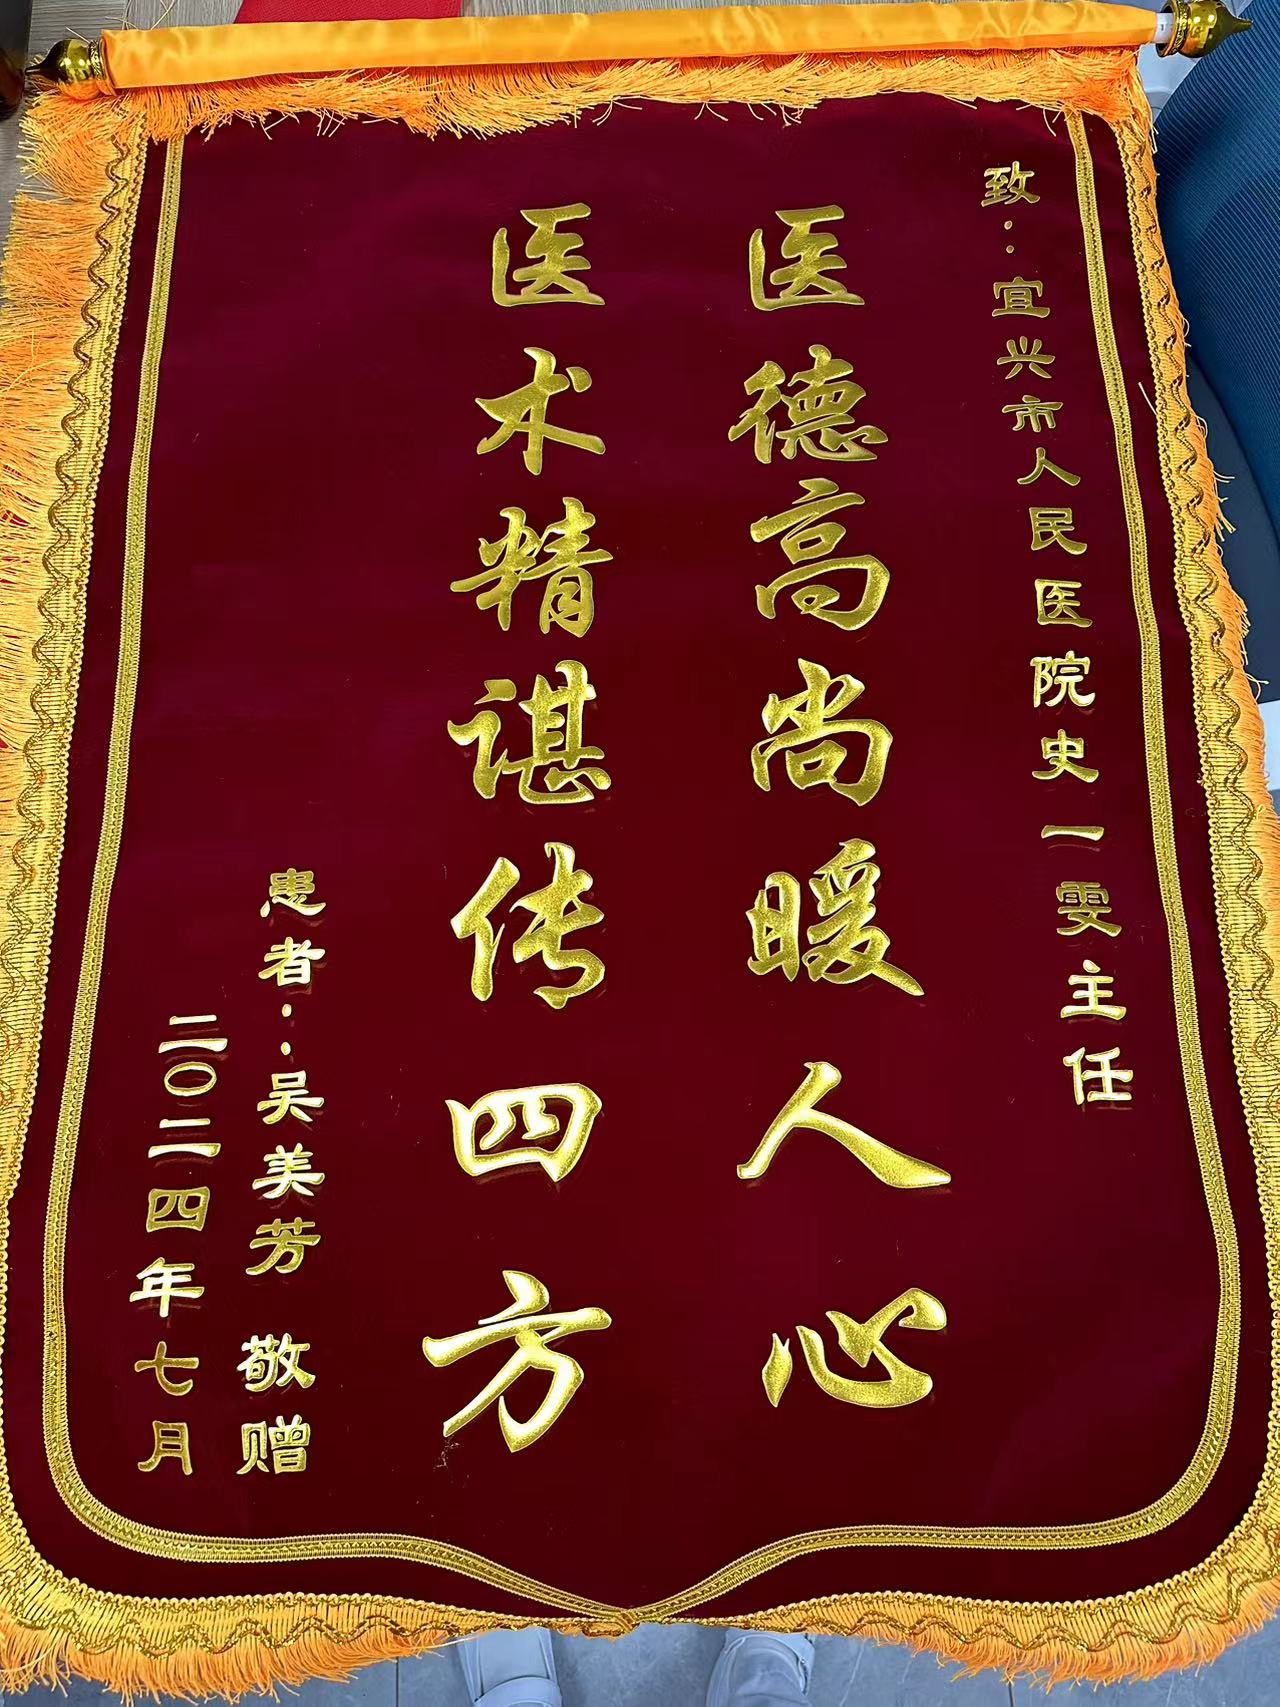 致：宜兴市人民医院史一雯主任
医德高尚暖人心
医术精谌传四方
患者：吴美芳 敬赠
二〇二四年七月